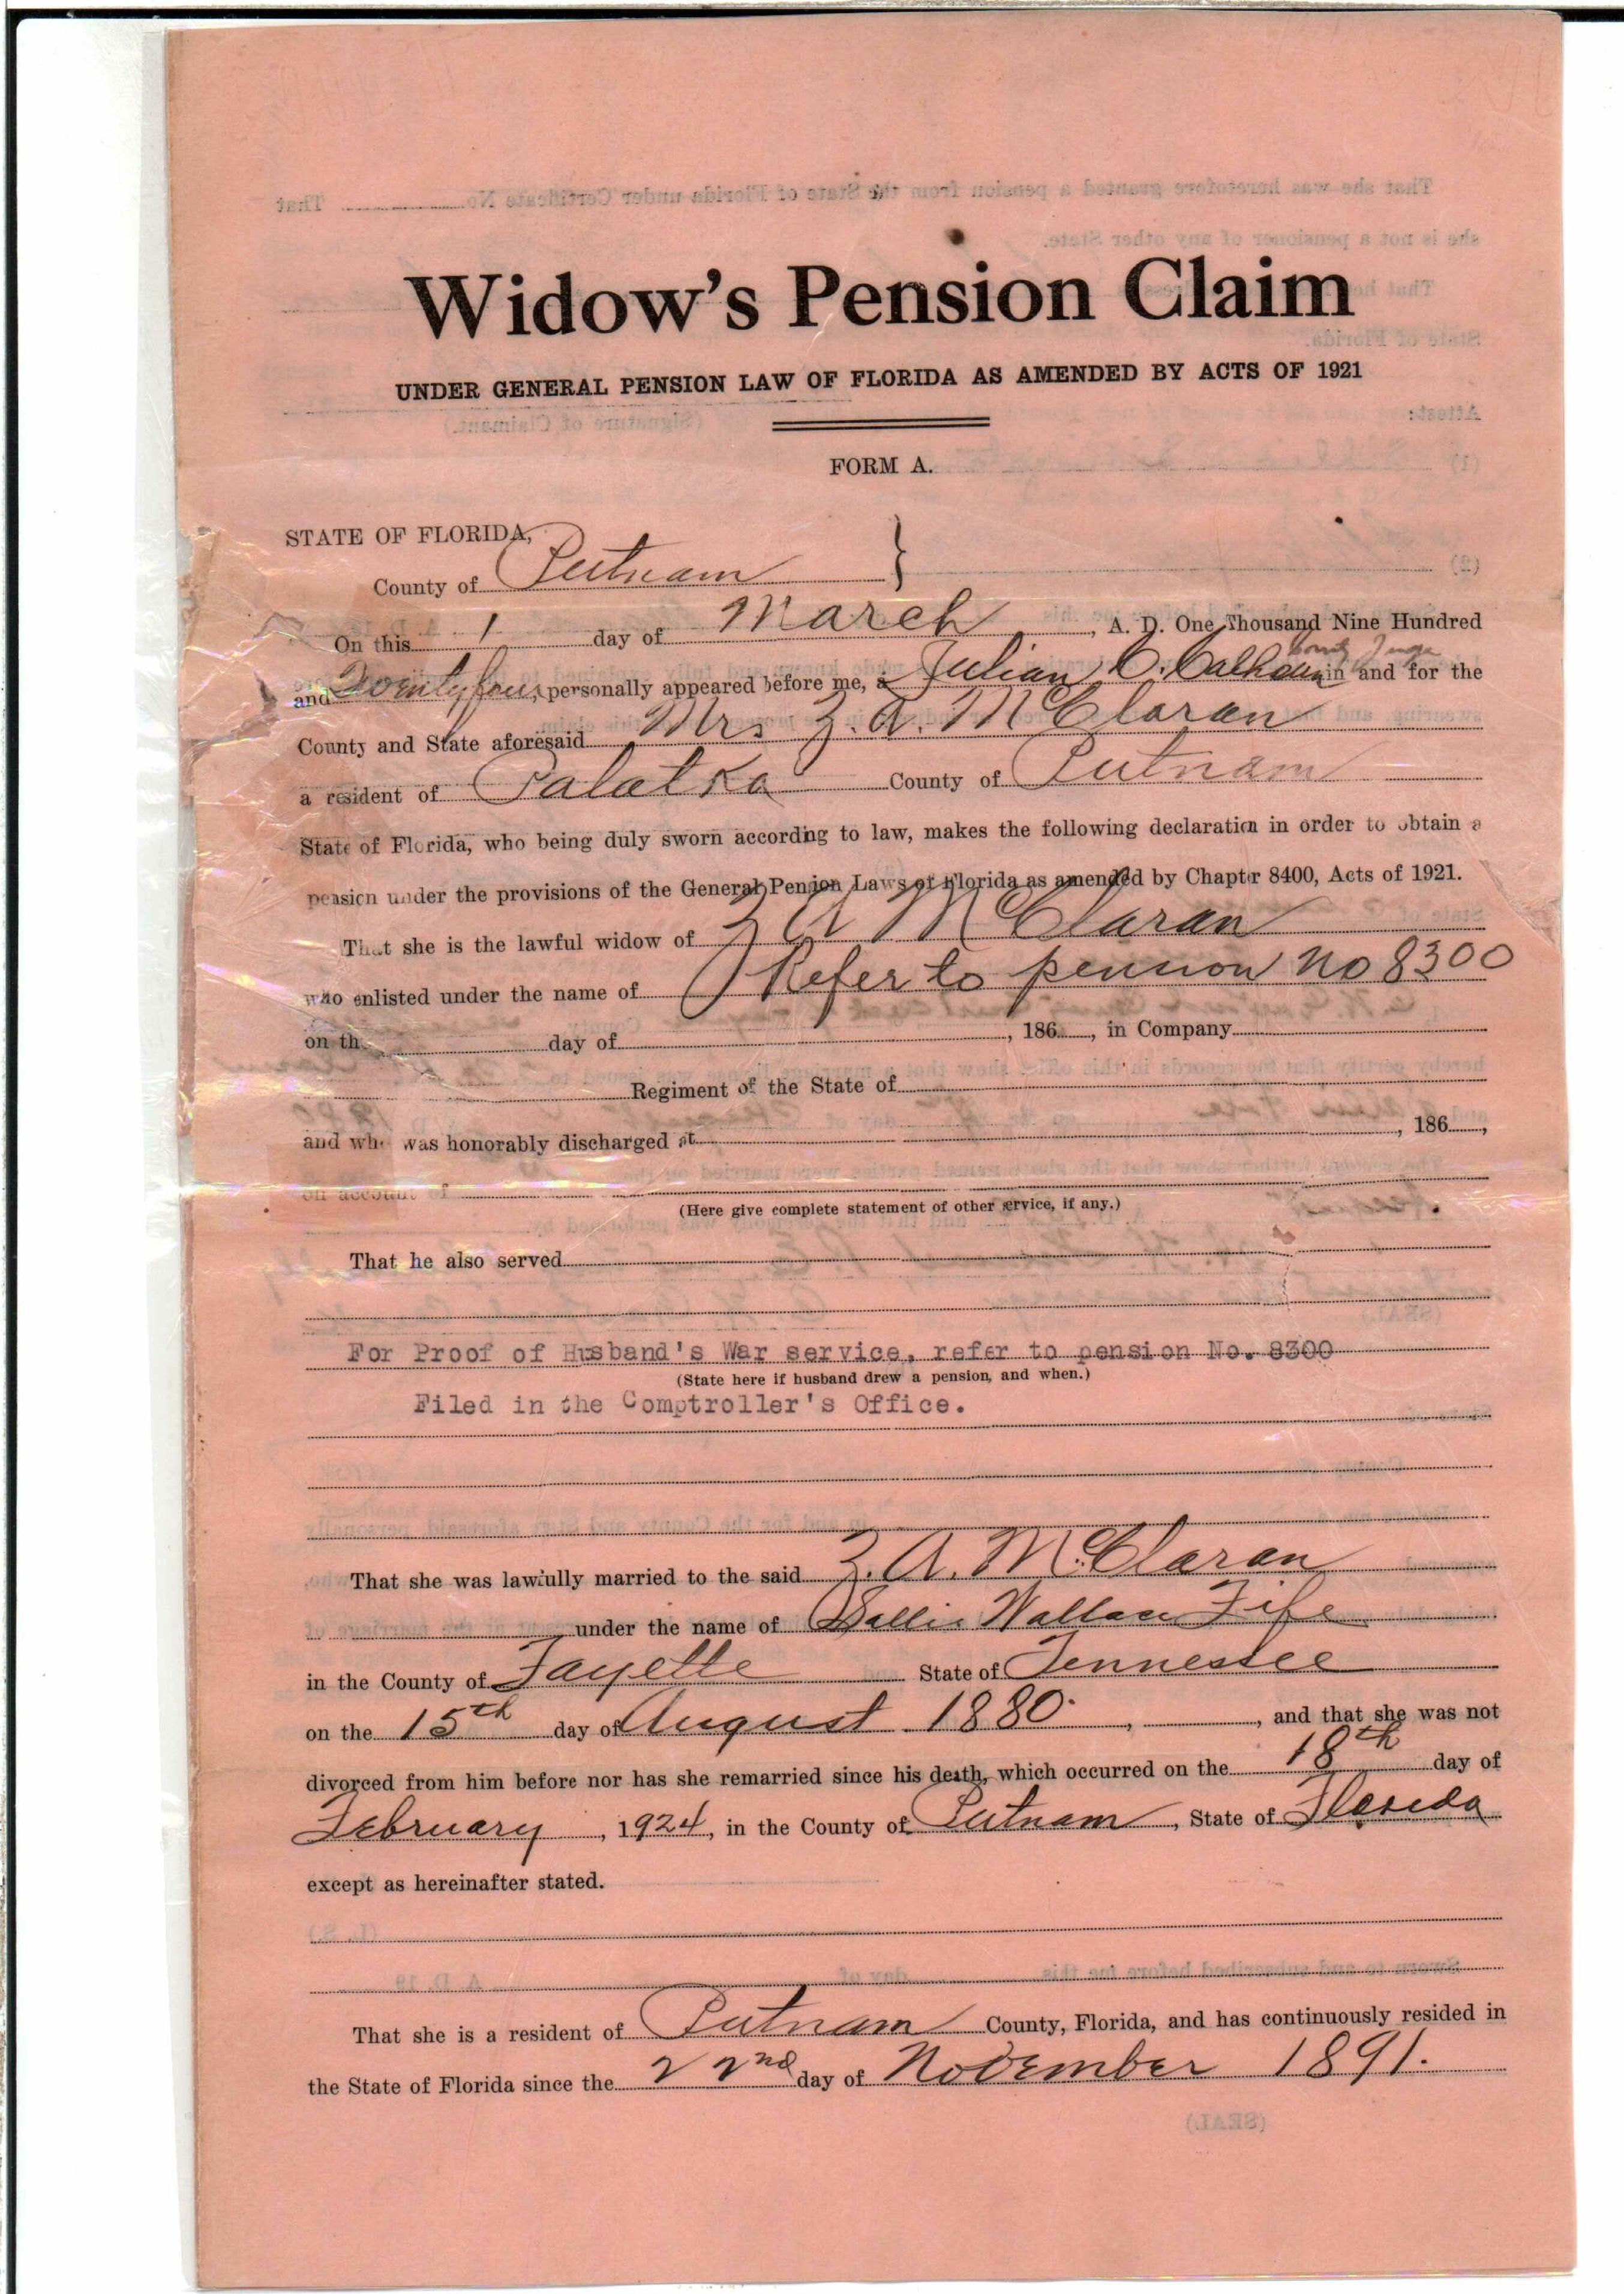 Widow's Pension Claim
UNDER GENERAL PENSION LAW OF FLORIDA AS AMENDED BY ACTS OF 1921
FORM A.
STATE OF FLORIDA,
County of Putnam }
On this 1 day of March, A. D. One Thousand Nine Hundred
County Judge
and Twenty four, personally appeared before me, a Julian C. Calhoun in and for the
County and State aforesaid Mrs Z. A. McClaran
a resident of Palatka County of Putnam
State of Florida, who being duly sworn according to law, makes the following declaration in order to obtain a
pension under the provisions of the General Pension Laws of Florida as amended by Chapter 8400, Acts of 1921.
That she is the lawful widow of Z A McClaran
who enlisted under the name of Refer to pension no 8300
on th day of , 186 , in Company
Regiment of the State of
and who was honorably discharged at , 186 ,
on account of
(Here give complete statement of other service, if any.)
That he also served
For Proof of Husband's War service, refer to pension No. 8300
(State here if husband drew a pension, and when.)
Filed in the Comptroller's Office.
That she was lawfully married to the said Z. A. McClaran
under the name of Sallie Wallace Fife
in the County of Fayette State of Tennessee
on the 15th day of August 1880 , , and that she was not
divorced from him before nor has she remarried since his death, which occurred on the 18th day of
February, 1924, in the County of Putnam, State of Florida
except as hereinafter stated.
That she is a resident of Putnam County, Florida, and has continuously resided in
the State of Florida since the 22nd day of November 1891.